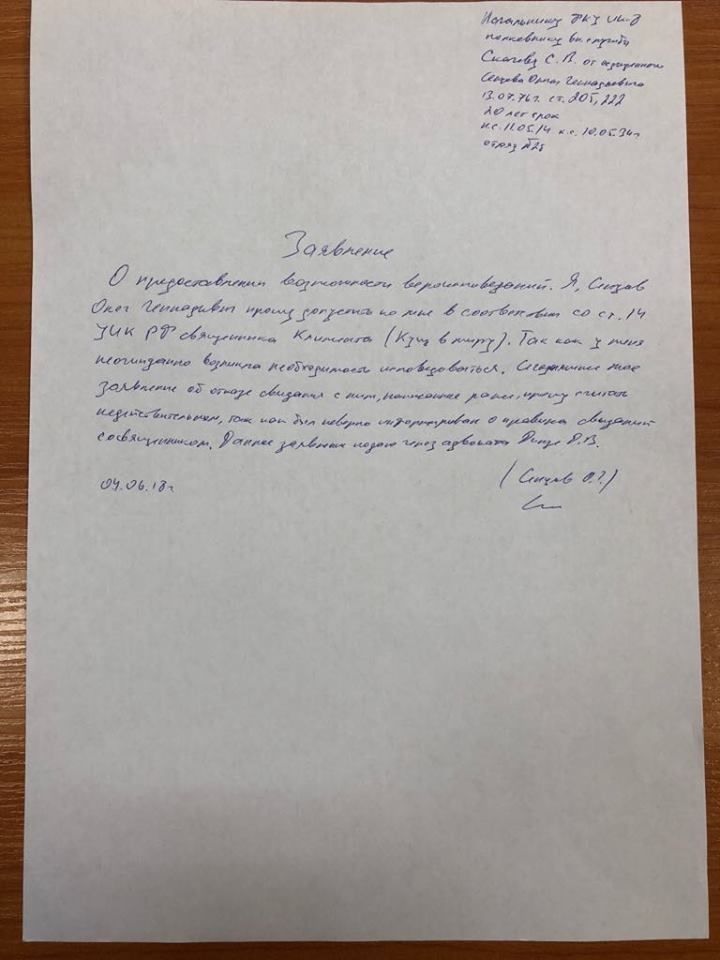 Начальнику ФКУ ИК-8
полковнику вн. службы
С. В. от осужденного
Сенцова Олега Геннадьевича
13.07.76г. ст. 205, 222
20 лет срок
н.с. 11.05.14 к.с. 10.05.34г
отряд
Заявление
О предоставлении возможности вероисповеданий. Я, Сенцов
Олег Геннадьевич прошу допустить ко мне в соответствии со ст. 14
УИК РФ священника Климента (Кущ в миру). Так как у меня
неожиданно возникла необходимость исповедоваться. мое
заявление об отказе свидания с ним, написанное ранее, прошу считать
недействительным, так как был неверно информирован о правилах свиданий
со священником. Данное заявление подаю через адвоката Динзе Д.В.
04.06.18г (Сенцов О.Г.)